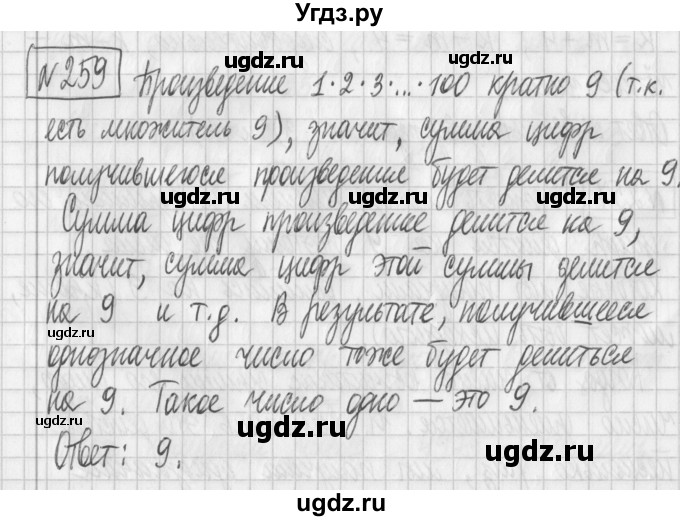 Угдз.ру
№259 Произведение 1·2·3·...·100 кратно 9 (т.к.
есть множитель 9), значит, сумма цифр
получившегося произведения будет делится на 9.
Сумма цифр произведение делится на 9,
значит, сумма цифр этой суммы делится
на 9 и т.д. В результате, получившееся
однозначное число тоже будет делиться
на 9. Такое число одно — это 9.
Ответ: 9.
ugdz.ru
ugdz.ru
ugdz.ru
ugdz.ru
ugdz.ru
ugdz.ru
ugdz.ru
ugdz.ru
ugdz.ru
ugdz.ru
ugdz.ru
ugdz.ru
ugdz.ru